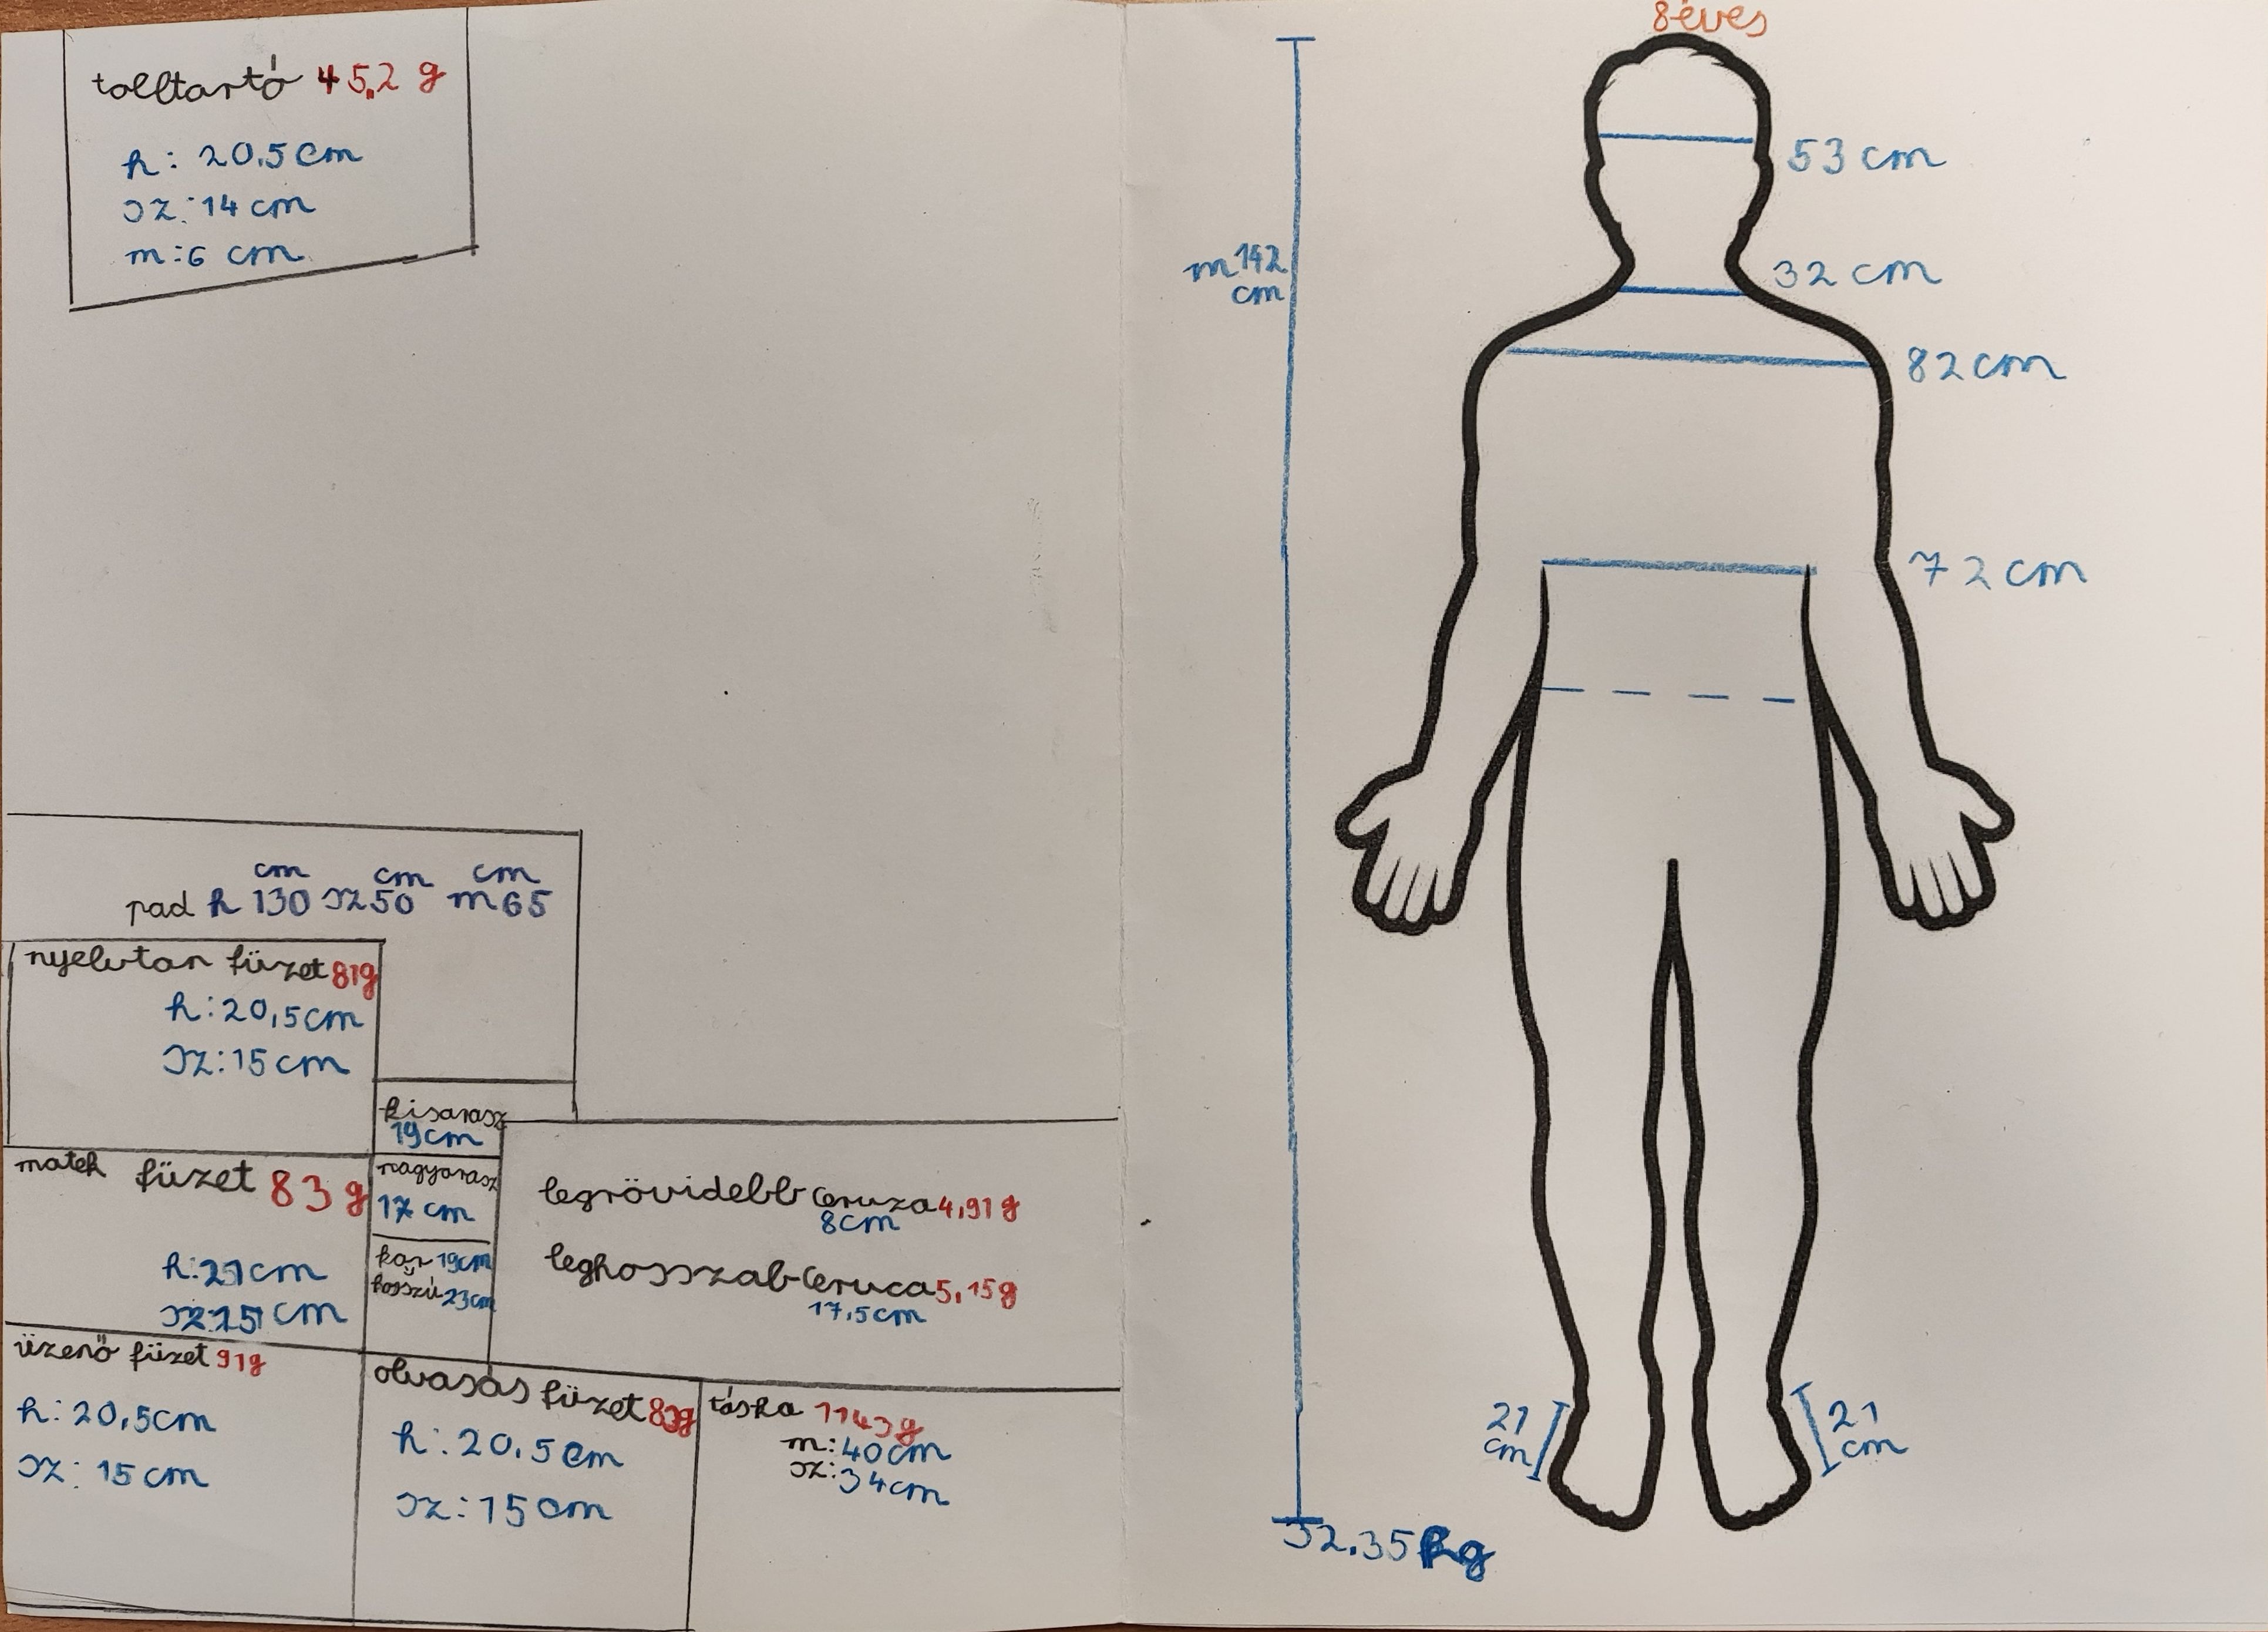 tolltartó 45,2 g
h: 20,5 cm
sz: 14 cm
m: 6 cm
cm cm cm
pad h 130 sz 50 m 65
nyelvtan füzet 81g
h: 20,5 cm
sz: 15 cm
kisarasz
19 cm
matek füzet 83 g
h: 21 cm
sz: 15 cm
nagyarasz
17 cm
kar 19cm
hosszú 23cm
legrövidebb ceruza 4,91 g
8 cm
leghosszab ceruca 5,15 g
17,5 cm
üzenő füzet 91g
h: 20,5 cm
sz: 15 cm
olvasás füzet 83g
h: 20,5 cm
sz: 15 cm
táska 1143 g
m: 40 cm
sz: 34 cm
8 éves
53 cm
m 142
cm
32 cm
82 cm
72 cm
21
cm
21
cm
32.35 kg